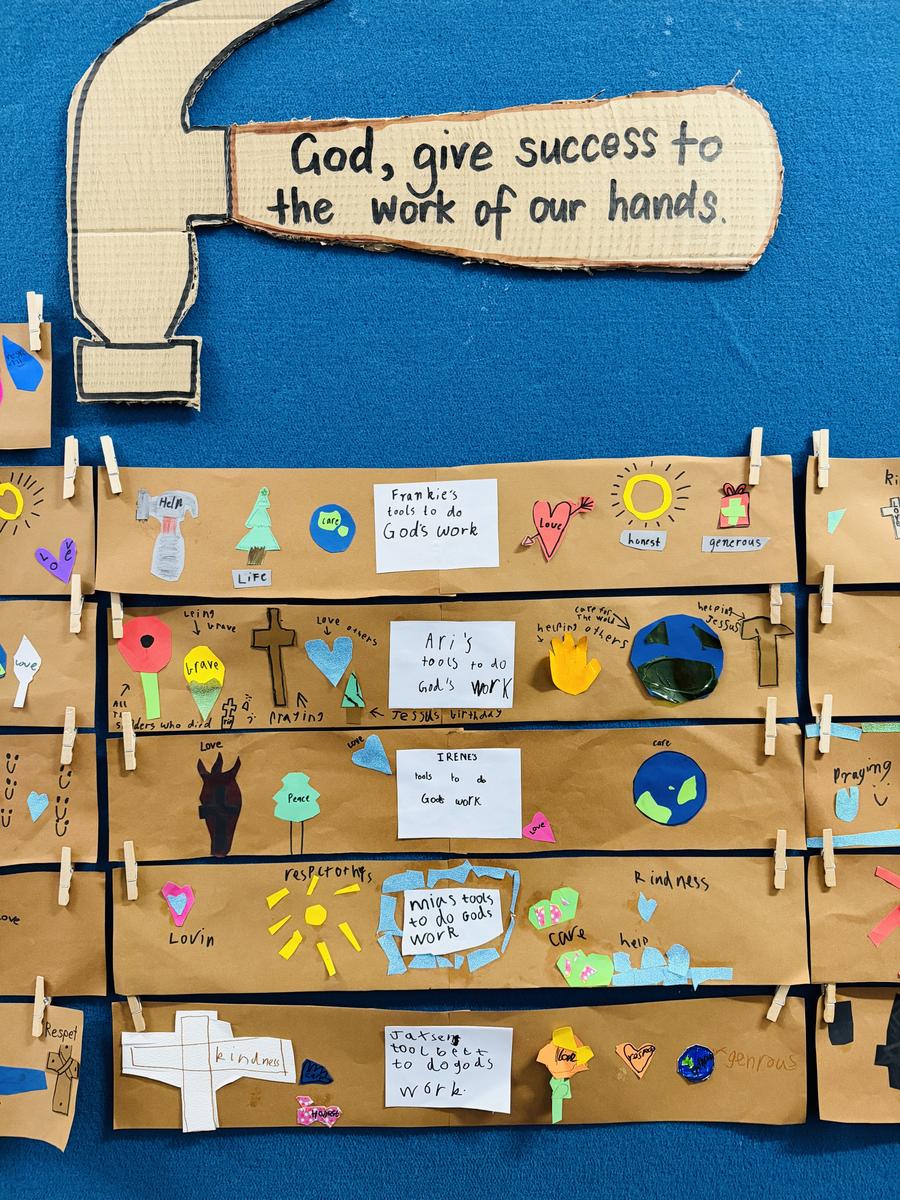 God, give success to
the work of our hands.
Help
LIFE
care
Frankie's
tools to do
God's work
Love
honest
generous
Ki
Love
being
brave
brave
Love others
ALL
diers who died
praying
Jessus birthday
Ari's
tools to do
God's work
helping others
care for
the world
helping
Jessus
love
Love
Peace
Love
IRENE'S
tools to do
Gods work
Love
care
Praying
ove
respctothrs
Lovin
mias tools
to do Gods
work
Kindness
care
help
Respet
kindness
Honest
Jaxsens
tool bett
to do gods
work.
love
respect
genrous